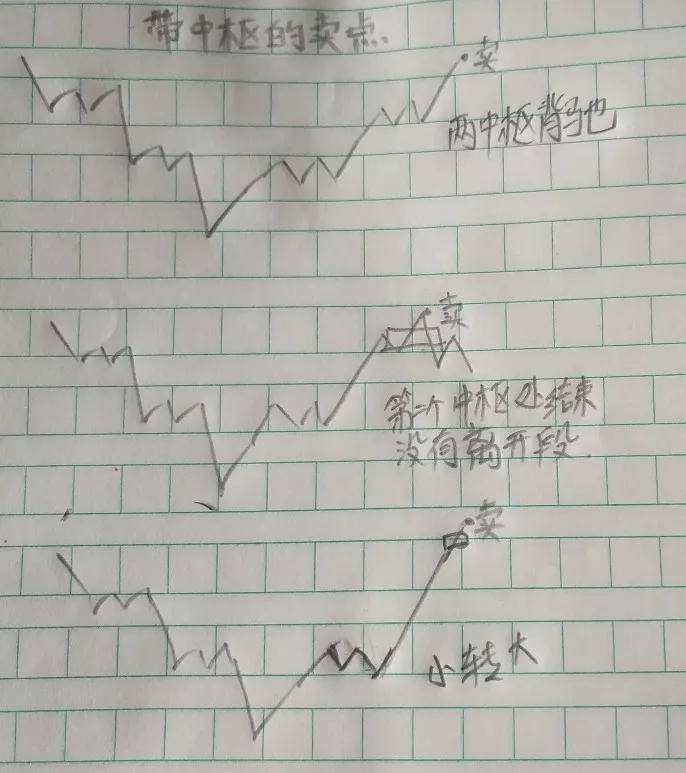 带中枢的卖点.
卖
两中枢背驰
卖
第二个中枢处结束
没有离开段.
卖
小转大